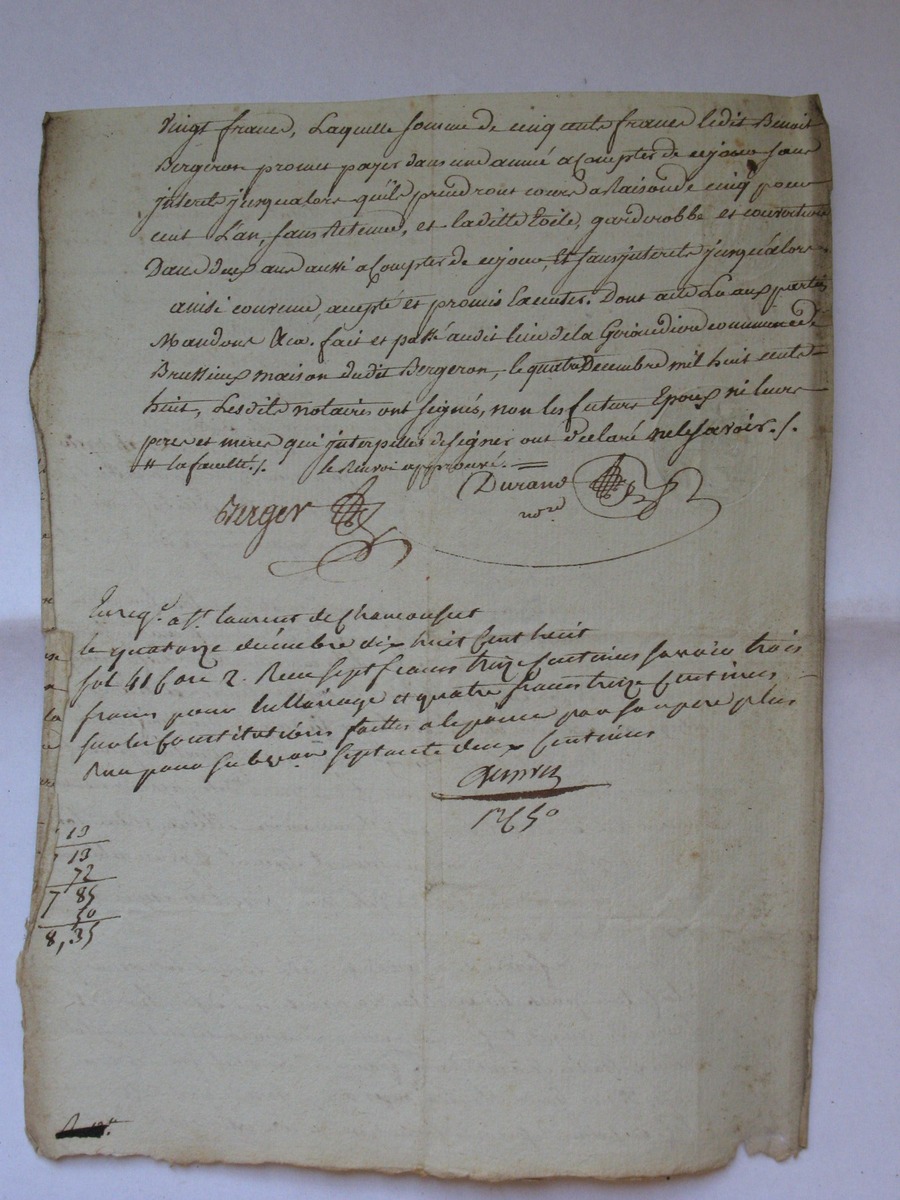 vingt francs, Laquelle somme de cinq cents francs ledit Benoit
Bergeron promet payer dans une année a Compter de ce jour sans
jnterets jusqualors qu'ils prendront cours a Raison de cinq pour
cent L'an, sans Retenue, et la ditte Toile, garderobbe et couverture
Dans deux ans aussi a Compter de ce jour, Et sans jnterets jusqu'alors.
ainsi convenu, accepté et promis Executer. Dont acte Lu aux parties
Mandons &ca. fait et passé audit lieu de la Giraudiere commune de
Brussieux maison dudit Bergeron, le quatre Decembre mil huit cents
huit, Lesdits notaires ont signés, non les futurs Epoux ni leurs
peres et meres qui jnterpellés de signer ont declaré ne le savoir ./.
# la faculté ./. le Renvoi approuvé. =
Berger Durand
nore
Enregé. a St. laurent de Chamousset
le quatorze décembre dix huit Cent huit
fol 41 Case 2. Reçu sept francs treize Centimes savoir trois
francs pour le Mariage et quatre francs treize Centimes
sur les Constitutions faittes a l'epouse par son pere plus
Reçu pour subvon septante deux Centimes
13
13
72
7 85
50
8,35